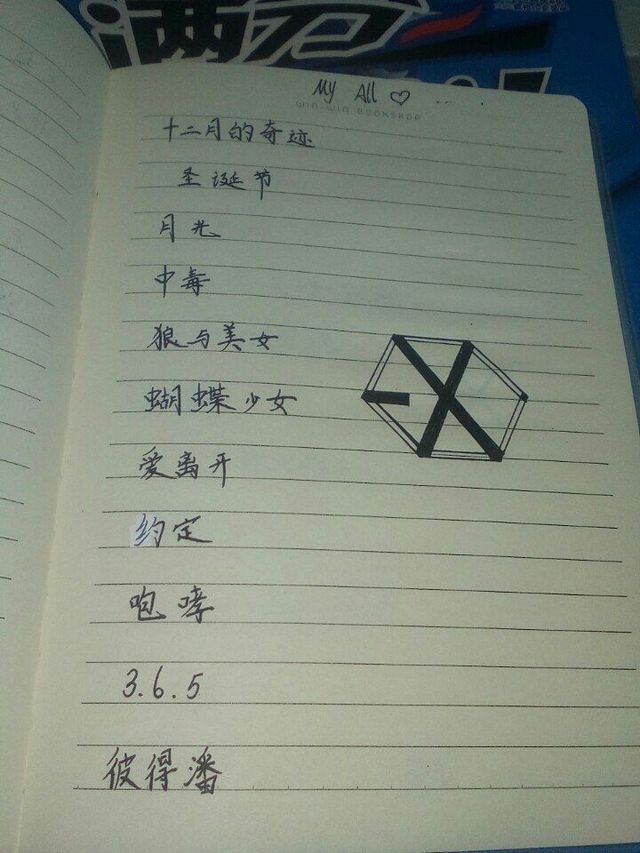 满分
My All ♡ ...
WIN-WIN BOOKSHOP
十二月的奇迹
圣诞节
月光
中毒
狼与美女
蝴蝶少女
爱离开
约定
咆哮
3.6.5
彼得潘